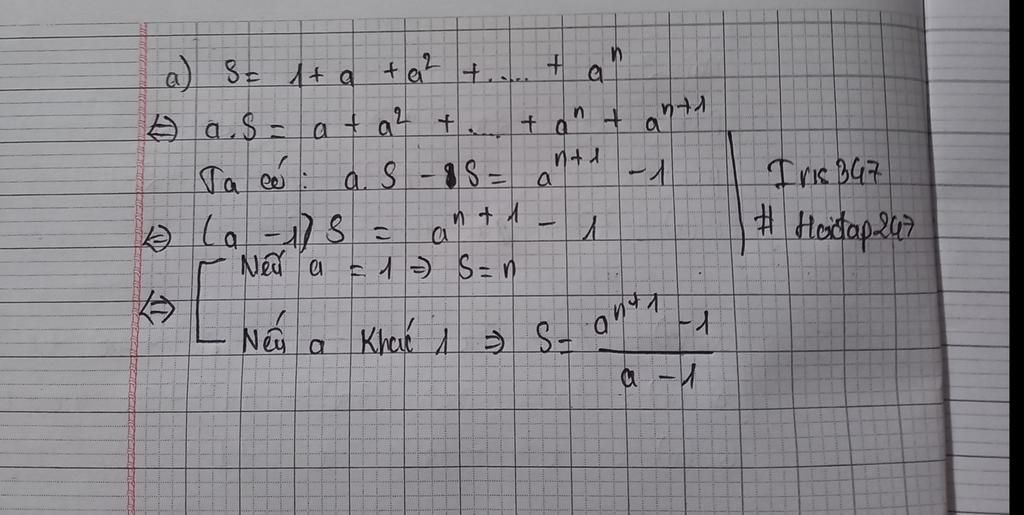 a) S = 1 + a + a² + ..... + aⁿ
⇔ a.S = a + a² + .... + aⁿ + aⁿ⁺¹
Ta có: a.S - S = aⁿ⁺¹ - 1
⇔ (a - 1) S = aⁿ⁺¹ - 1
⇔ [ Nếu a = 1 ⇒ S = n
Nếu a Khác 1 ⇒ S = (aⁿ⁺¹ - 1)/(a - 1)
Iris347
# Hoidap247